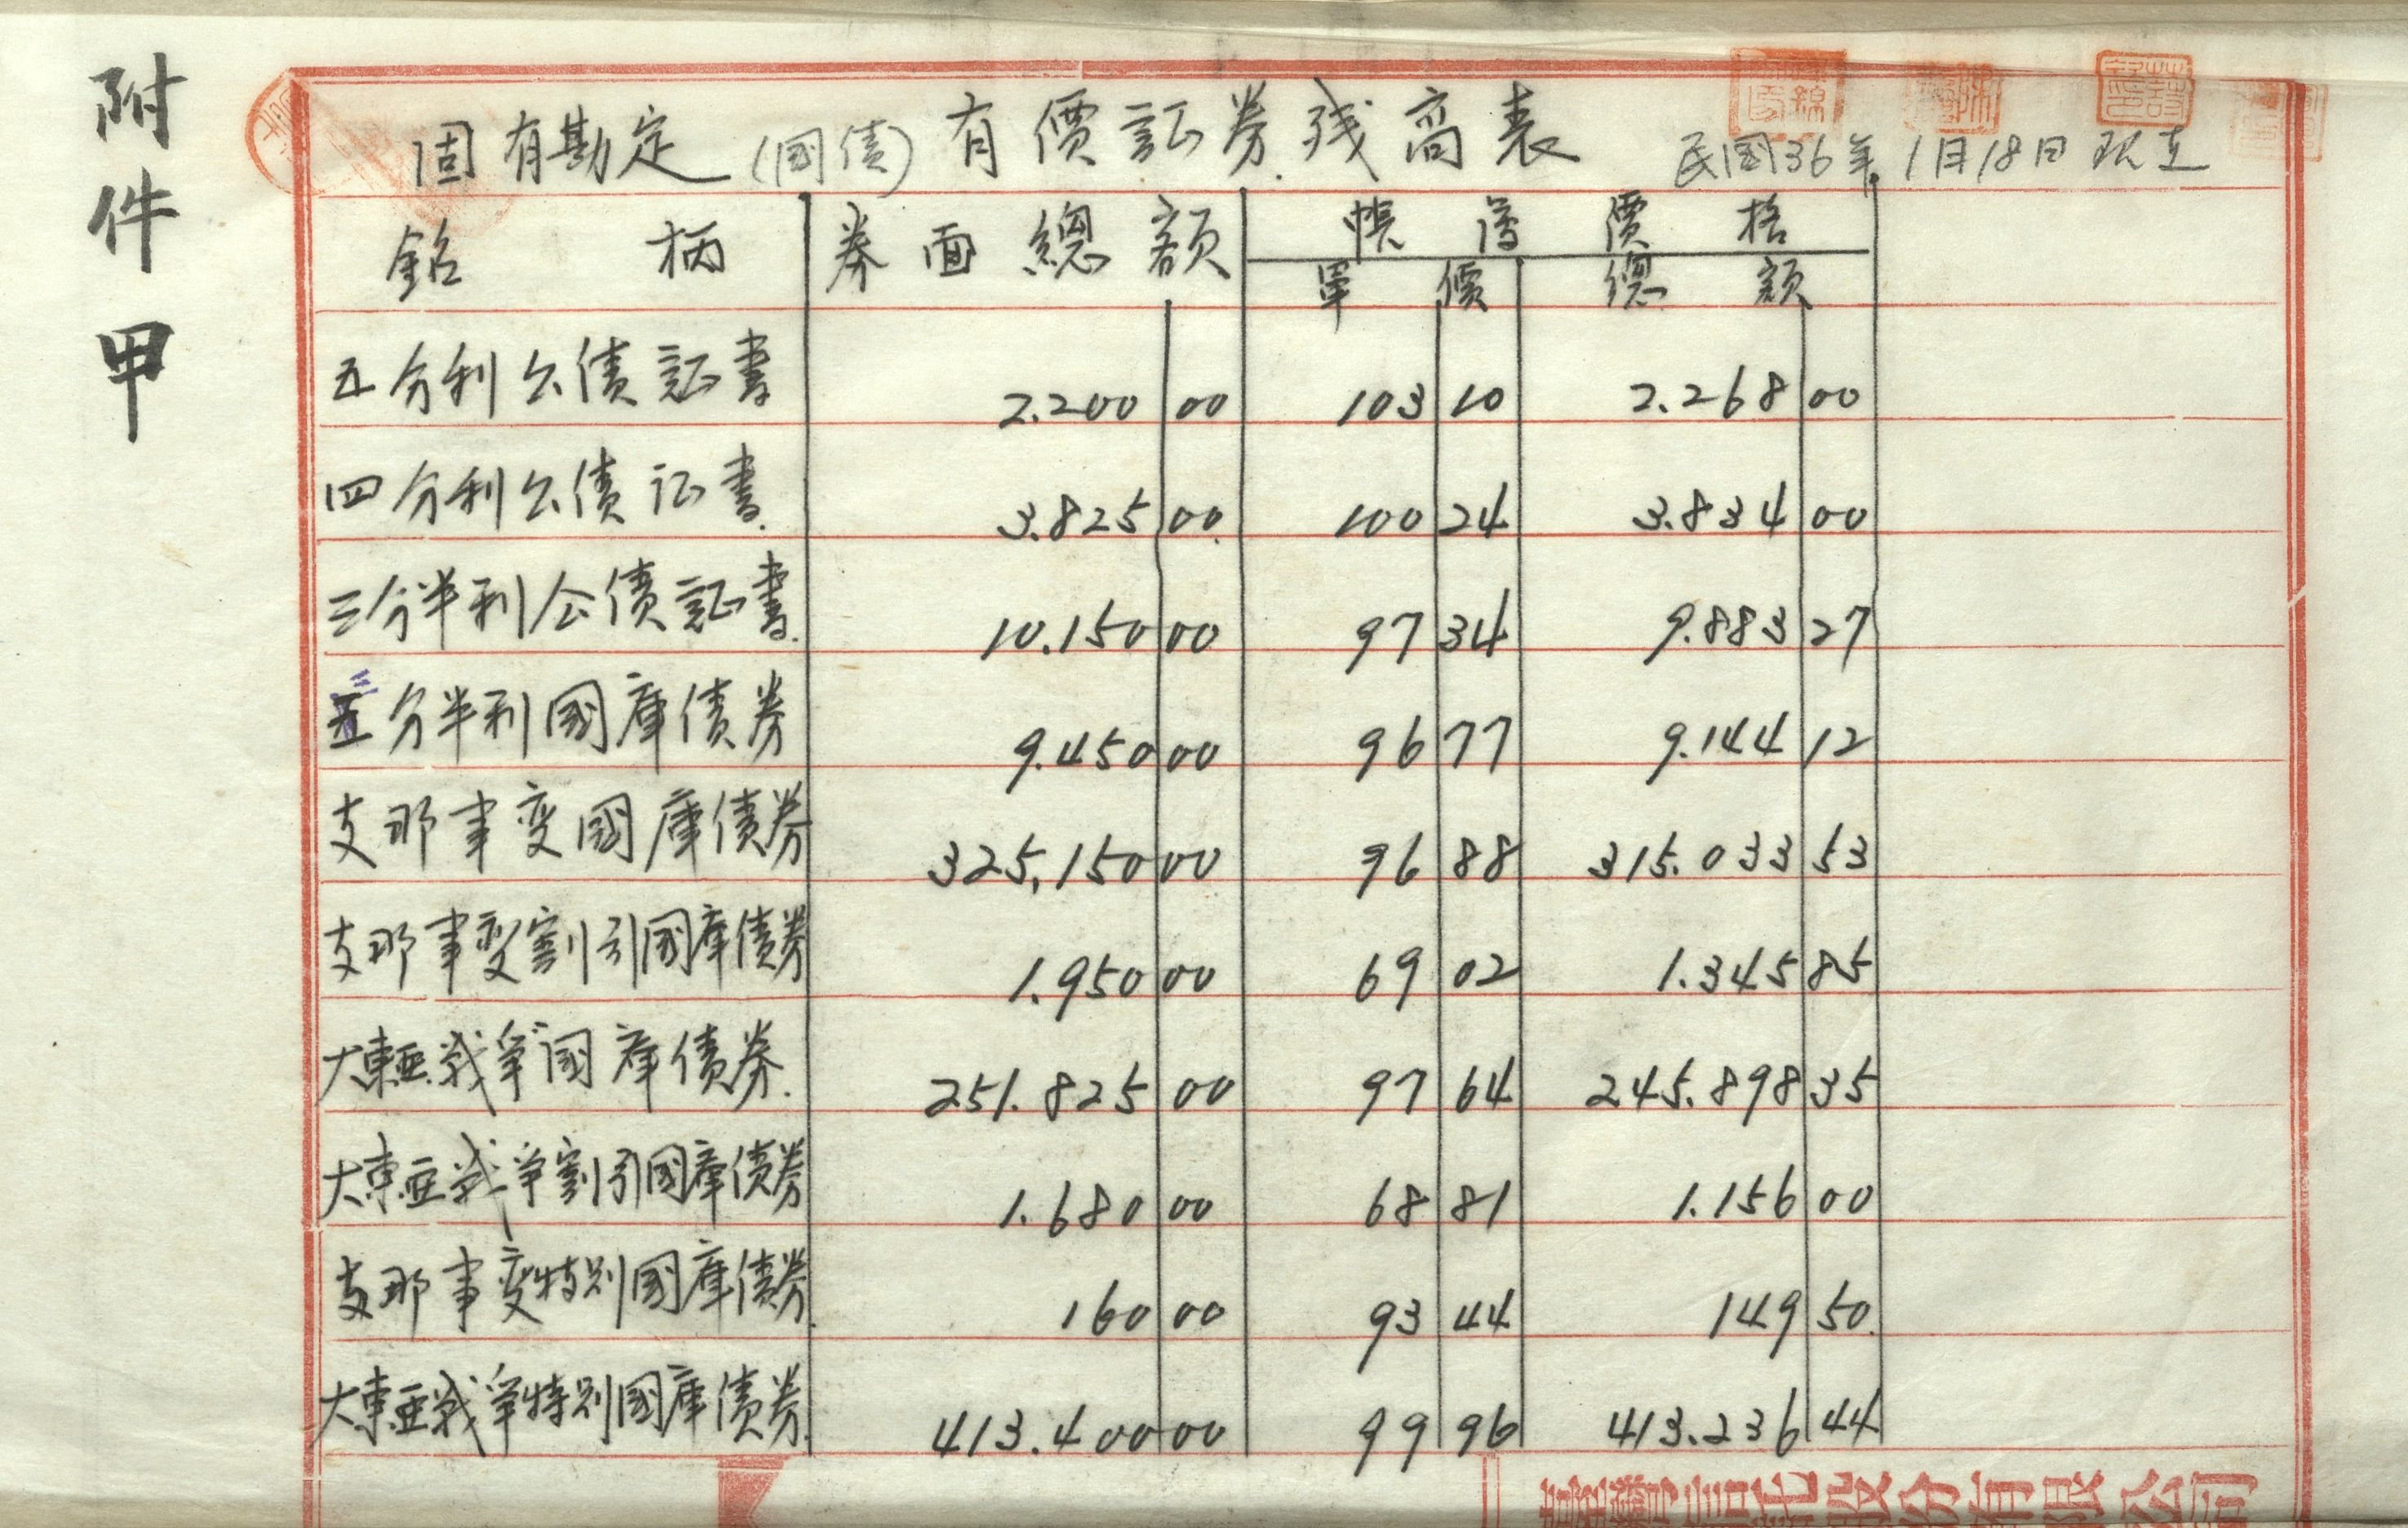 附件甲
固有勘定(國債)有價証券残高表 民國36年1月18日現在
銘柄 券面總額 帳簿價格
單價 總額
五分利公債証書 2.200 00 103 10 2.268 00
四分利公債证書 3.825 00 100 24 3.834 00
三分半利公債証書 10.150 00 97 34 9.883 27
三分半利國庫債券 9.450 00 96 77 9.144 12
支那事変國庫債券 325,150 00 96 88 315.033 53
支那事変割引國庫債券 1.950 00 69 02 1.345 85
大東亜戦争國庫債券 251.825 00 97 64 245.898 35
大東亜戦争割引國庫債券 1.680 00 68 81 1.156 00
支那事変特別國庫債券 160 00 93 44 149 50
大東亜戦争特別國庫債券 413.400 00 99 96 413.236 44
臺灣信託股份有限公司